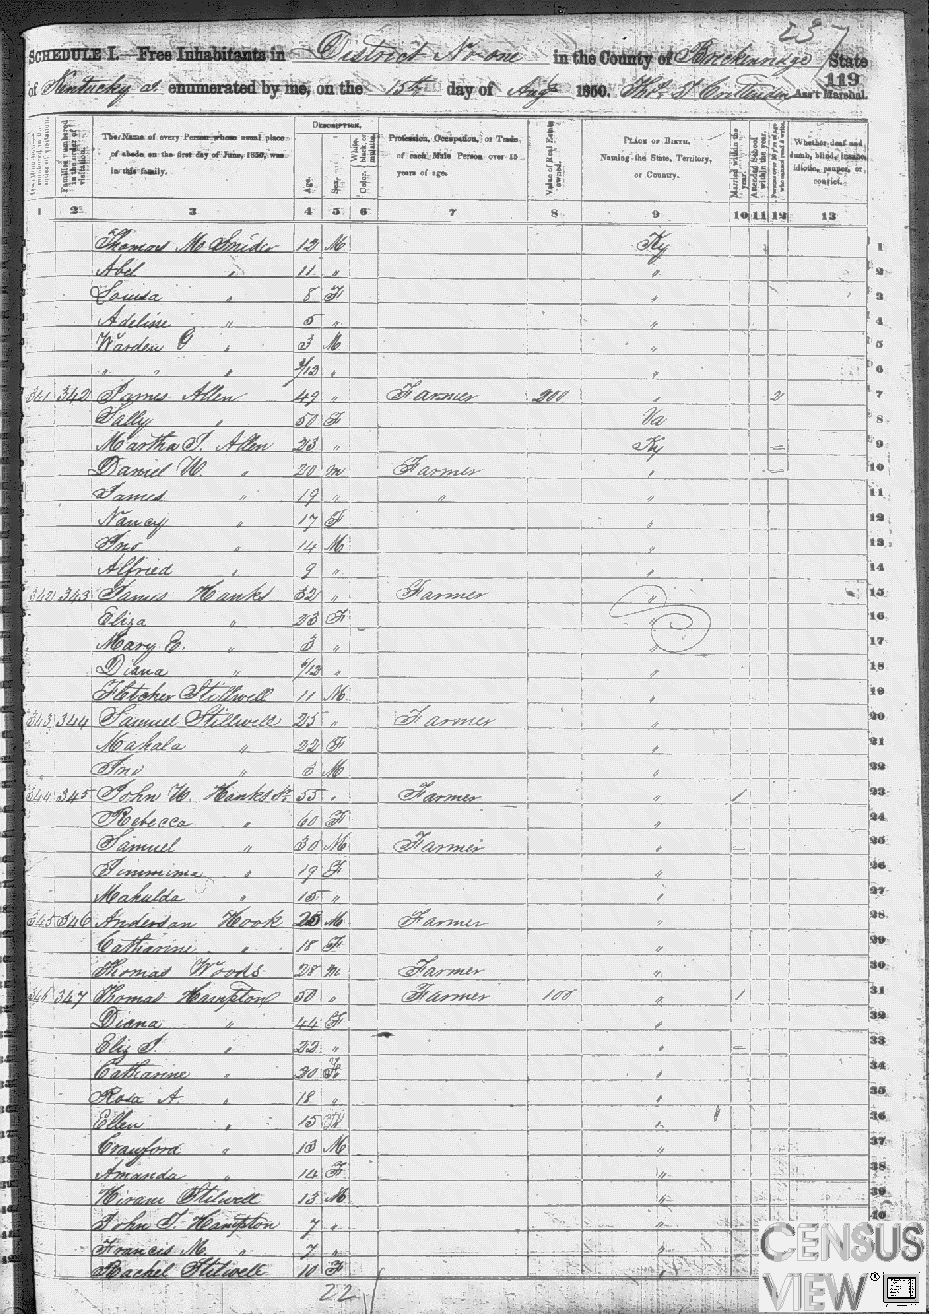 237
SCHEDULE I.—Free Inhabitants in District No one in the County of Breckenridge State
119
of Kentucky enumerated by me, on the 15th day of Augt 1850. Ass't Marshal.
Families numbered in the order of visitation.
The Name of every Person whose usual place of abode on the first day of June, 1850, was in this family.
DESCRIPTION.
Age.
Sex.
Color, White, black, or mulatto.
Profession, Occupation, or Trade of each Male Person over 15 years of age.
Value of Real Estate owned.
PLACE OF BIRTH, Naming the State, Territory, or Country.
Married within the year.
Attended School within the year.
Whether deaf and dumb, blind, insane, idiotic, pauper, or convict.
1 2 3 4 5 6 7 8 9 10 11 12 13
Thomas M Snider 12 M Ky 1
Abel " 11 " " 2
Louisa " 8 F " 3
Adeline " 5 " " 4
Warden G " 3 M " 5
" " " /12 " " 6
341 342 James Allen 49 " Farmer 200 " 2 7
Sally " 50 F Va 8
Martha J. Allen 23 " Ky 9
Daniel W " 20 m Farmer " 10
James " 19 " " " 11
Nancy " 17 F " 12
Jno " 14 M " 13
Alfried " 9 " " 14
342 343 James Hanks 32 " Farmer " 15
Eliza " 23 F " 16
Mary E. " 3 " " 17
Diana " /12 " " 18
Fletcher Stillwell 11 M " 19
343 344 Samuel Stillwell 25 " Farmer " 20
Mahala " 22 F " 21
Jno " 3 M " 22
344 345 John W. Hanks Sr. 55 " Farmer " 1 23
Rebecca " 60 F " 24
Samuel " 30 M Farmer " 25
Jimmima " 19 F " 26
Mahulda " 15 " " 27
345 346 Anderson Hook 25 M Farmer " 28
Catharine " 18 F " 29
Thomas Woods 28 m Farmer " 30
346 347 Thomas Hampton 50 " Farmer 100 " 1 31
Diana " 44 F " 32
Eliz J. " 22 " " 33
Catharine " 20 F " 34
Rosa A. " 18 " " 35
Ellen " 15 " 36
Crawford " 13 M " 37
Amanda " 14 F " 38
Hiram Stilwell 15 M " 39
John T. Hampton 7 " " 40
Francis M. " 7 " "
Rachel Stilwell 10 F
22
CENSUS
VIEW®